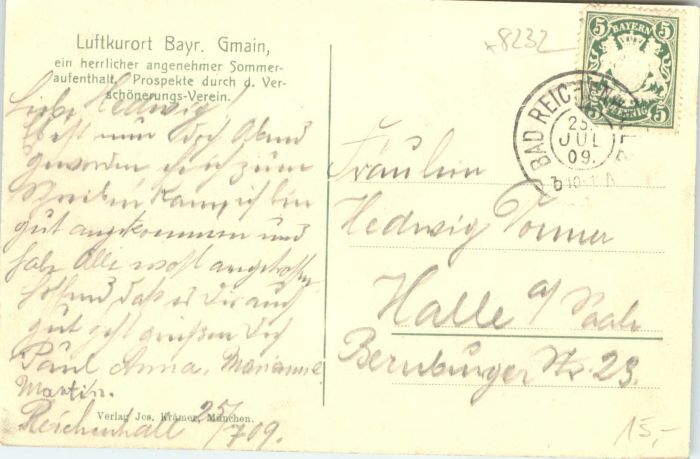 Luftkurort Bayr. Gmain,
ein herrlicher angenehmer Sommer-
aufenthalt. Prospekte durch d. Ver-
schönerungs-Verein.
Liebe Hedwig!
Es ist nun doch Abend
geworden ehe ich zum
Schreiben kam, ich bin
gut angekommen und
habe Alle wohl angetroffen
hoffend daß es Dir auch
gut geht grüßen Dich
Paul Anna, Marianne
Martin.
Reichenhall 25/7 09.
Verlag Jos. Krämer, München.
*8232
5 BAYERN 5
5 PFENNIG 5
BAD REICHENHALL
25.
JUL
09.
Fräulein
Hedwig
Halle a/ Saale
Bernburger Str. 23.
15,-